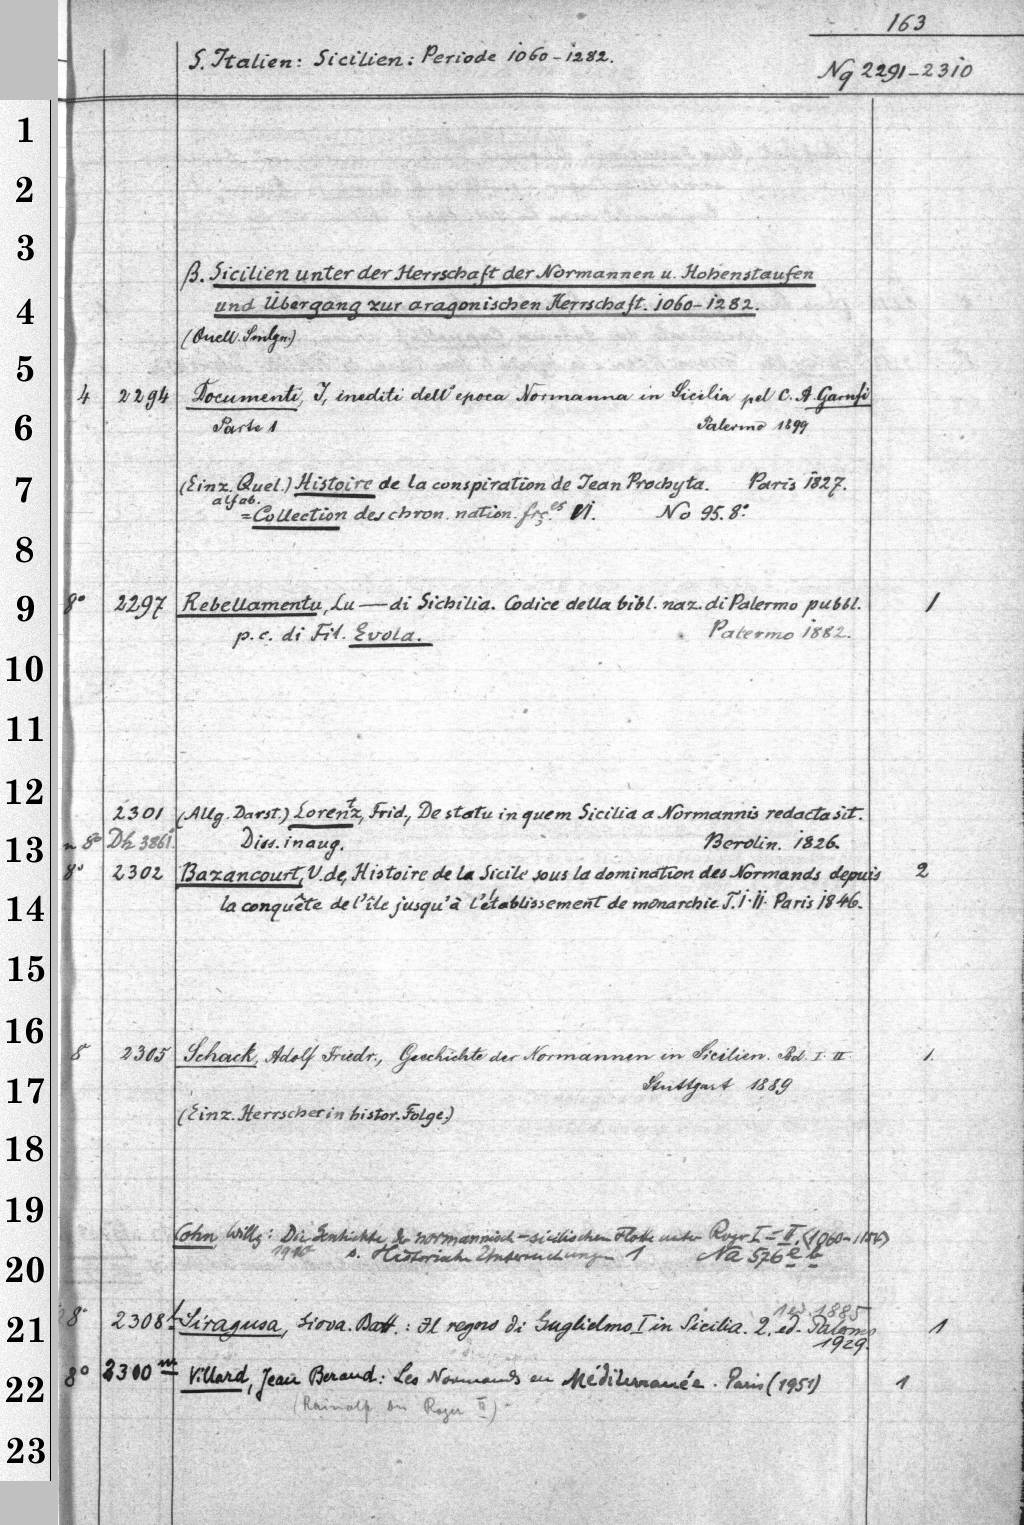 163
S. Italien: Sicilien: Periode 1060-1282.
Nq 2291-2310
1
2
3
β. Sicilien unter der Herrschaft der Normannen u. Hohenstaufen
4
und Übergang zur aragonischen Herrschaft. 1060-1282.
(Quell. Smlgn.)
5
4 2294 Documenti, I, inediti dell' epoca Normanna in Sicilia pel C. A. Garufi
6
Parte 1 Palermo 1899
7
(Einz. Quel.) Histoire de la conspiration de Jean Prochyta. Paris 1827.
alfab.
= Collection des chron. nation. frç.es VI. No 95. 8°
8
9
8° 2297 Rebellamentu, Lu — di Sichilia. Codice della bibl. naz. di Palermo pubbl. 1
p. c. di Fil. Evola. Palermo 1882.
10
11
12
2301 (Allg. Darst.) Lorentz, Frid., De statu in quem Sicilia a Normannis redacta sit.
13
8° Dh 3861 Diss. inaug. Berolin. 1826.
8° 2302 Bazancourt, V. de, Histoire de la Sicile sous la domination des Normands depuis 2
14
la conquête de l'île jusqu'à l'établissement de monarchie T. I. II. Paris 1846.
15
16
8 2305 Schack, Adolf Friedr., Geschichte der Normannen in Sicilien. Bd. I. II 1.
17
Stuttgart 1889
(Einz. Herrscher in histor. Folge.)
18
19
Cohn, Willy: Die Geschichte der normannisch-sicilischen Flotte unter Roger I = II. (1060-1154)
1910 s. Historische Untersuchungen 1 Na 576 e b
20
1 ed. 1885
21
8° 2308 l Siragusa, Giova. Batt.: Il regno di Guglielmo I in Sicilia. 2. ed. Palermo 1
1929.
22
8° 2300 m Villard, Jean Beraud: Les Normands en Méditerranée. Paris (1951) 1
(Rainolf bis Roger II)
23